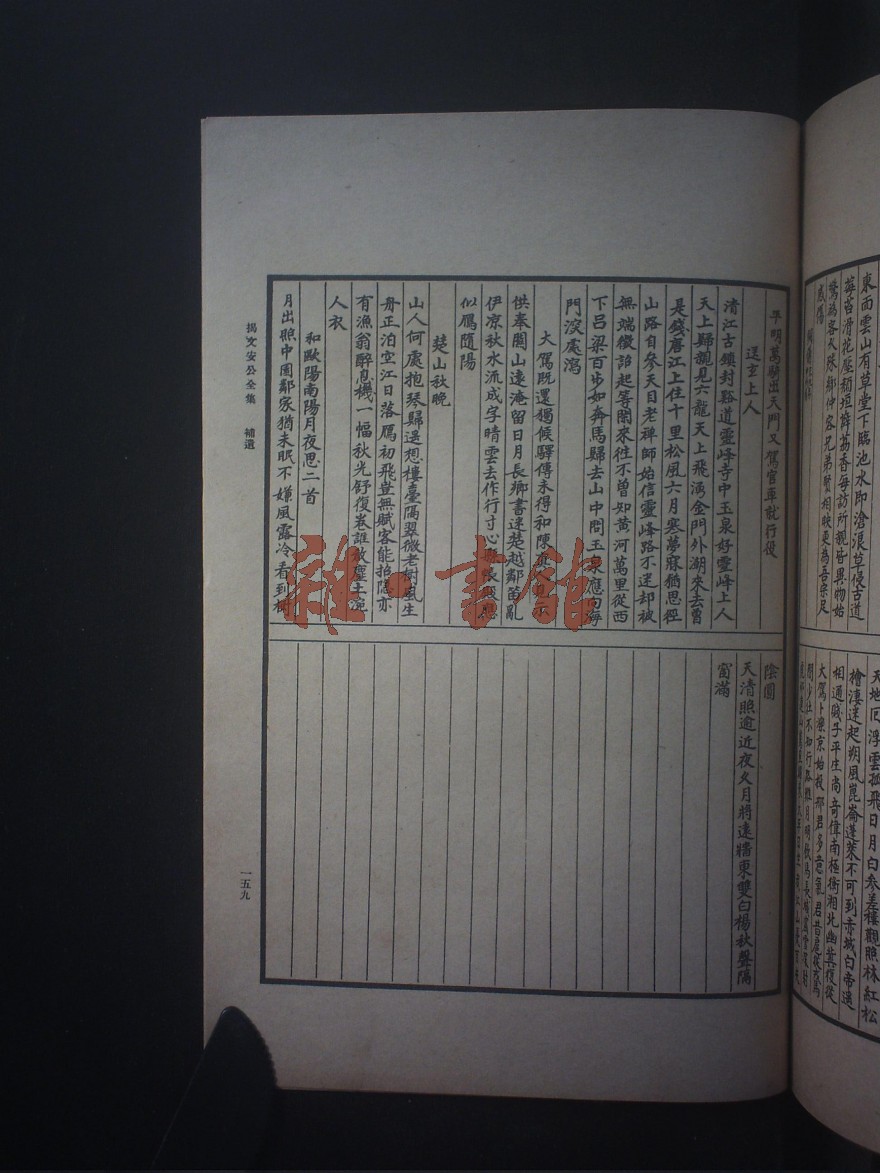 東而雲山有草堂下臨池水即滄浪草侵古道
平明萬騎出天門又駕官車就行役
送玄上人
清江古鎮封谿道靈峰寺中玉泉好靈峰上人
天上歸親見六龍天上飛湧金門外潮來去曾
是錢唐江上住十里松風六月寒夢寐猶思徑
山路自參天目老禪師始信靈峰路不迷却被
無端徵詔起等閒來往不曾知黃河萬里從西
下呂梁百步如奔馬歸去山中問玉泉應向海
門深處瀉
大駕既還獨候驛傳未得和陳
供奉關山遠淹留日月長鄉書迷楚越鄰笛亂
伊涼秋水流成字晴雲去作行寸心
似鴈隨陽
楚山秋晚
山人何處抱琴歸遥想樓臺隔翠微老樹風生
舟正泊空江日落鴈初飛豈無賦客能招隱亦
有漁翁醉息機一幅秋光舒復卷誰教塵土涴
人衣
和歐陽南陽月夜思二首
月出照中園鄰家猶未眠不嫌風露冷看到樹
陰圓
天清照逾近夜久月將遠牆東雙白楊秋聲隔
窗滿
揭文安公全集 補遺
一五九
雜·書館